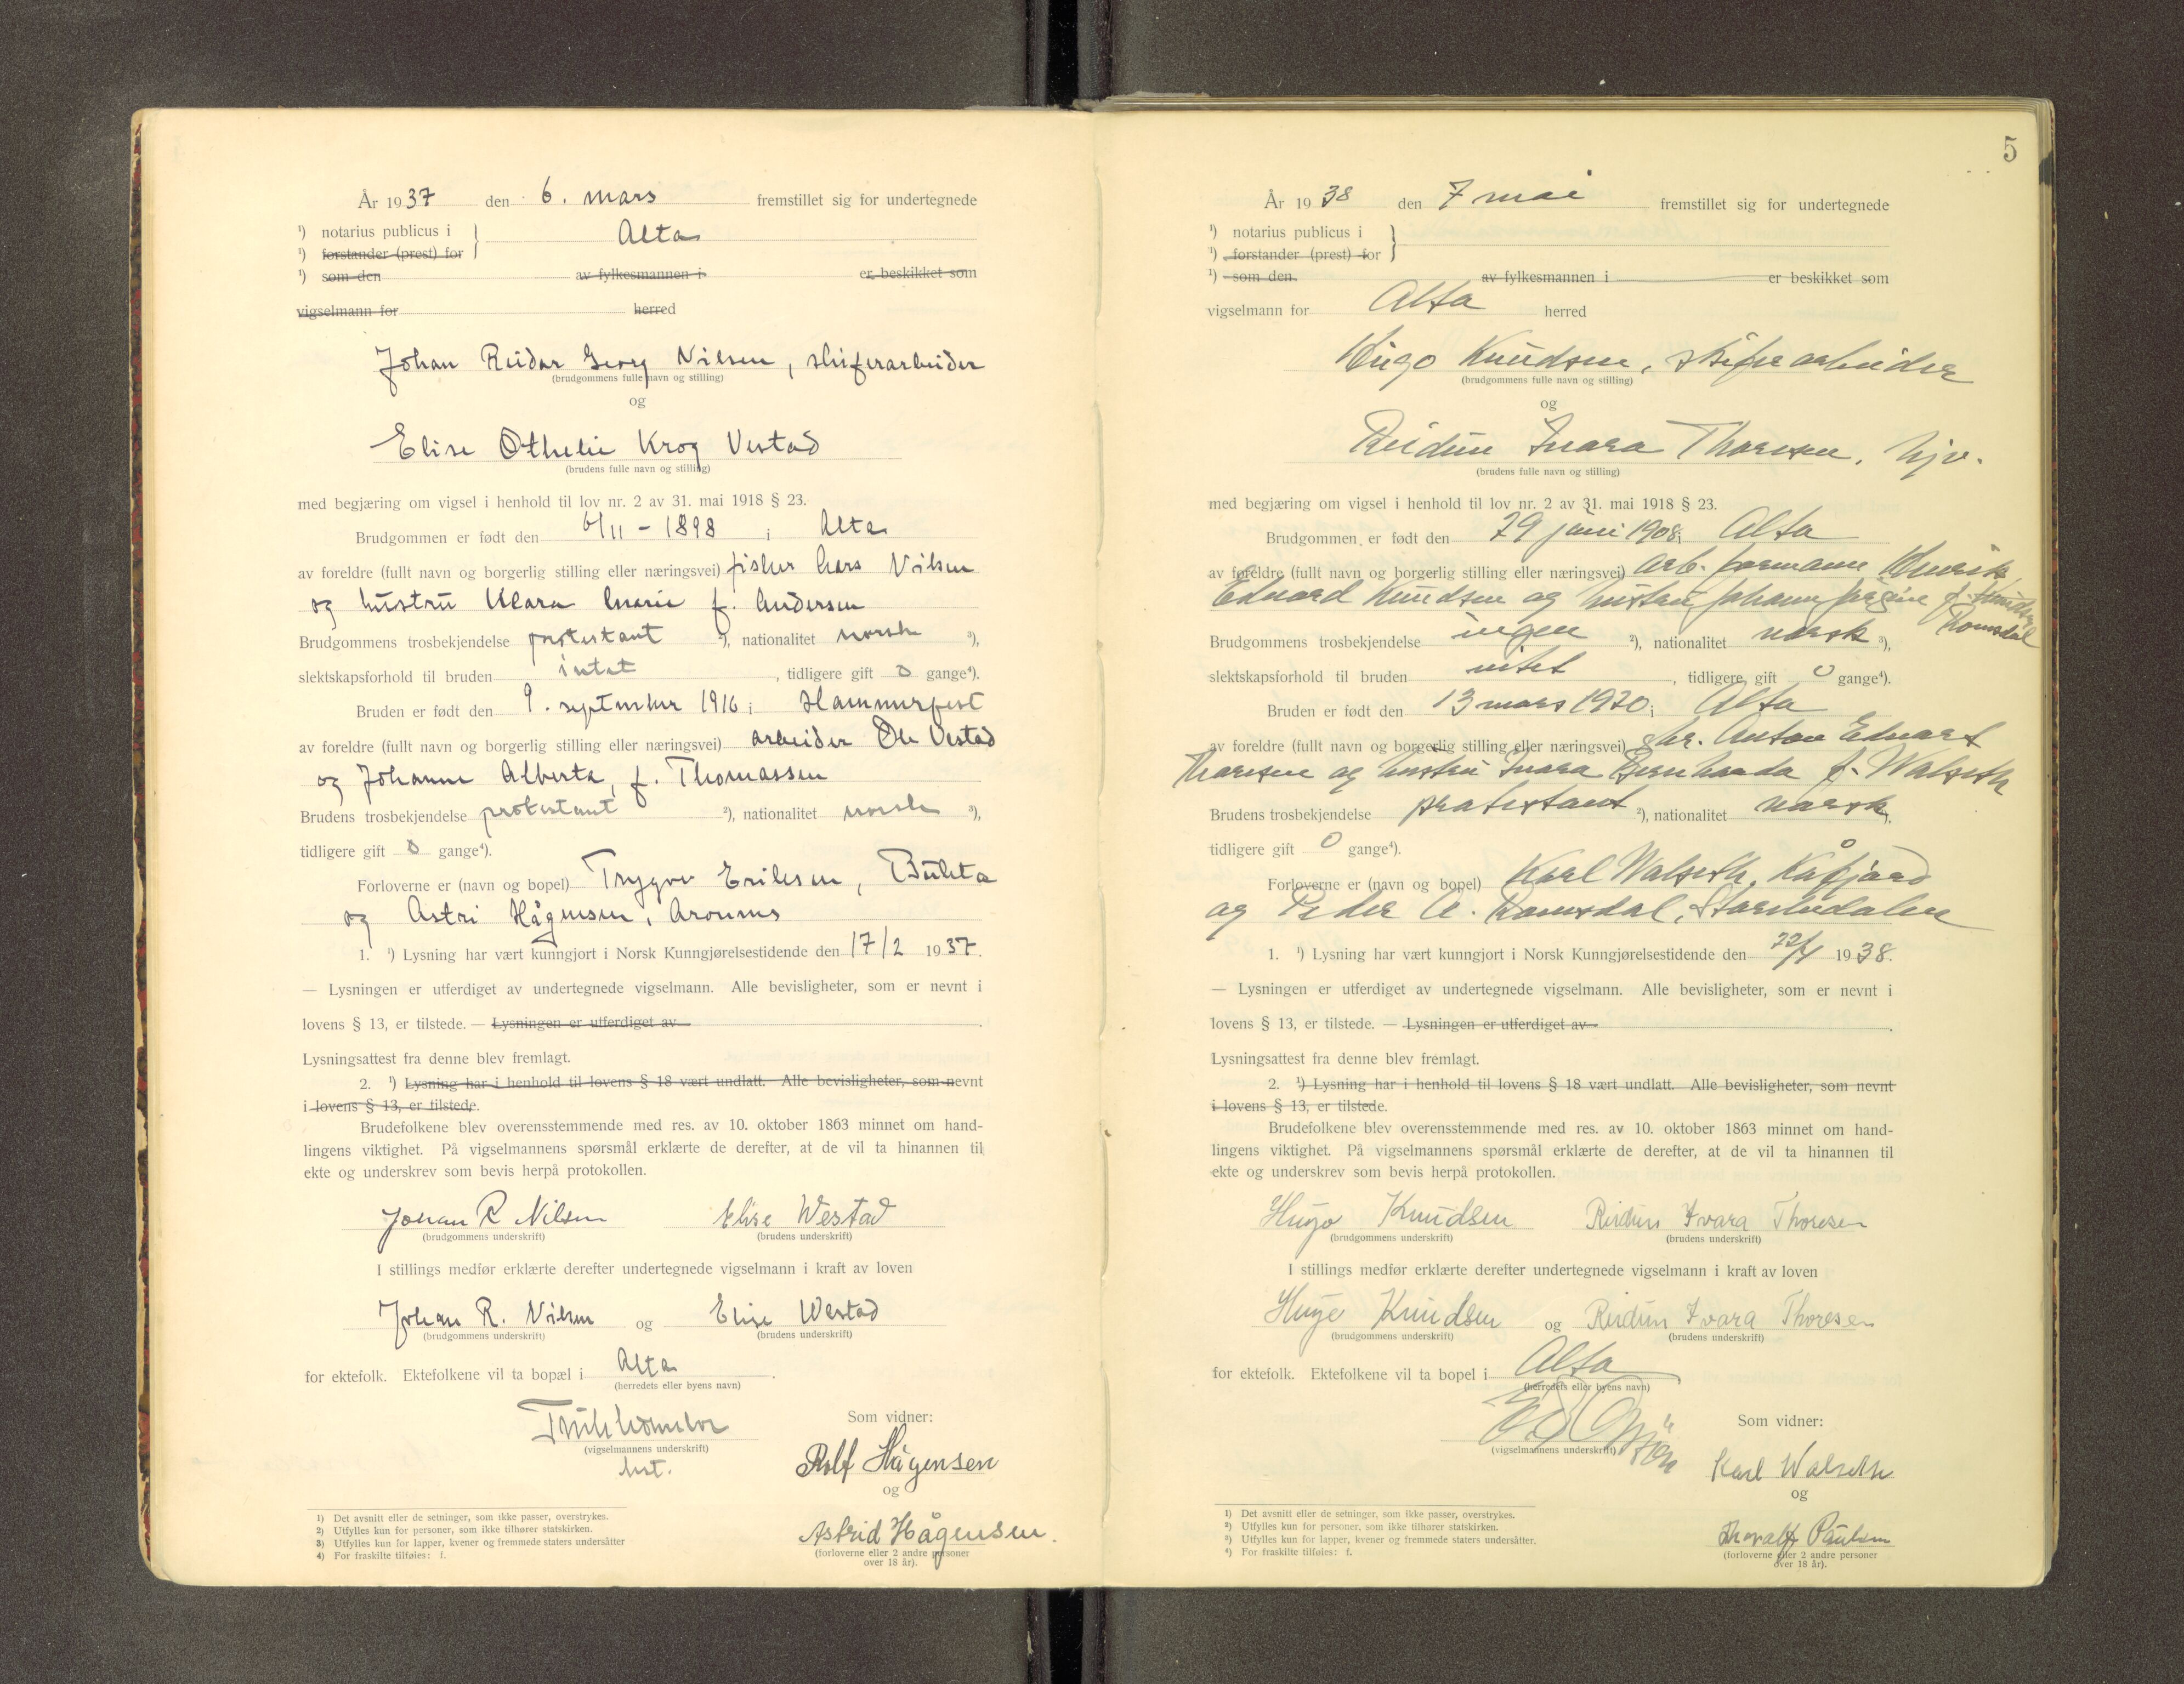 År 1937 den 6. mars fremstillet sig for undertegnede
¹) notarius publicus i Alta
¹) forstander (prest) for
¹) som den av fylkesmannen i er beskikket som
vigselmann for herred
Johan Reidar Georg Nilsen, skiferarbeider
(brudgommens fulle navn og stilling)
og
Elise Othelie Krog Vestad
(brudens fulle navn og stilling)
med begjæring om vigsel i henhold til lov nr. 2 av 31. mai 1918 § 23.
Brudgommen er født den 6/11 - 1898 i Alta
av foreldre (fullt navn og borgerlig stilling eller næringsvei) fisker Lars Nilsen
og hustru Klara Marie f. Andersen
Brudgommens trosbekjendelse protestant ²), nationalitet norsk ³),
slektskapsforhold til bruden intet, tidligere gift 0 gange⁴).
Bruden er født den 9. september 1916 i Hammerfest
av foreldre (fullt navn og borgerlig stilling eller næringsvei) arbeider Ole Vestad
og Johanne Alberta, f. Thomassen
Brudens trosbekjendelse protestant ²), nationalitet norsk ³),
tidligere gift 0 gange⁴).
Forloverne er (navn og bopel) Trygve Eriksen, Bukta
og Astri Hågensen, Aronnes
1. ¹) Lysning har vært kunngjort i Norsk Kunngjørelsestidende den 17/2 1937.
— Lysningen er utferdiget av undertegnede vigselmann. Alle bevisligheter, som er nevnt i
lovens § 13, er tilstede. — Lysningen er utferdiget av .
Lysningsattest fra denne blev fremlagt.
2. ¹) Lysning har i henhold til lovens § 18 vært undlatt. Alle bevisligheter, som nevnt
i lovens § 13, er tilstede.
Brudefolkene blev overensstemmende med res. av 10. oktober 1863 minnet om hand-
lingens viktighet. På vigselmannens spørsmål erklærte de derefter, at de vil ta hinannen til
ekte og underskrev som bevis herpå protokollen.
Johan R Nilsen Elise Westad
(brudgommens underskrift) (brudens underskrift)
I stillings medfør erklærte derefter undertegnede vigselmann i kraft av loven
Johan R. Nilsen og Elise Westad
(brudgommens underskrift) (brudens underskrift)
for ektefolk. Ektefolkene vil ta bopæl i Alta.
(herredets eller byens navn)
(vigselmannens underskrift)
Som vidner:
Rolf Hågensen
og
Astrid Hågensen.
(forloverne eller 2 andre personer
over 18 år).
1) Det avsnitt eller de setninger, som ikke passer, overstrykes.
2) Utfylles kun for personer, som ikke tilhører statskirken.
3) Utfylles kun for lapper, kvener og fremmede staters undersåtter
4) For fraskilte tilføies: f.
5
År 1938 den 7 mai fremstillet sig for undertegnede
¹) notarius publicus i
¹) forstander (prest) for
¹) som den av fylkesmannen i er beskikket som
vigselmann for Alta herred
Hugo Knudsen, skiferarbeider
(brudgommens fulle navn og stilling)
og
Reidun Ivara Thoresen, hjv.
(brudens fulle navn og stilling)
med begjæring om vigsel i henhold til lov nr. 2 av 31. mai 1918 § 23.
Brudgommen er født den 29 juni 1908 i Alta
av foreldre (fullt navn og borgerlig stilling eller næringsvei) arb. formann Henrik
Edvard Knudsen og hustru Johanna f.
Romsdal
Brudgommens trosbekjendelse ingen ²), nationalitet norsk ³),
slektskapsforhold til bruden intet, tidligere gift 0 gange⁴).
Bruden er født den 13 mars 1920 i Alta
av foreldre (fullt navn og borgerlig stilling eller næringsvei) gbr. Anton Edvart
Thoresen og hustru Ivara Bernharda f. Walseth
Brudens trosbekjendelse protestant ²), nationalitet norsk ³),
tidligere gift 0 gange⁴).
Forloverne er (navn og bopel) Karl Walseth, Kåfjord
og Peder A. Romsdal, Storelvdalen
1. ¹) Lysning har vært kunngjort i Norsk Kunngjørelsestidende den 22/4 1938.
— Lysningen er utferdiget av undertegnede vigselmann. Alle bevisligheter, som er nevnt i
lovens § 13, er tilstede. — Lysningen er utferdiget av .
Lysningsattest fra denne blev fremlagt.
2. ¹) Lysning har i henhold til lovens § 18 vært undlatt. Alle bevisligheter, som nevnt
i lovens § 13, er tilstede.
Brudefolkene blev overensstemmende med res. av 10. oktober 1863 minnet om hand-
lingens viktighet. På vigselmannens spørsmål erklærte de derefter, at de vil ta hinannen til
ekte og underskrev som bevis herpå protokollen.
Hugo Knudsen Reidun Ivara Thoresen
(brudgommens underskrift) (brudens underskrift)
I stillings medfør erklærte derefter undertegnede vigselmann i kraft av loven
Hugo Knudsen og Reidun Ivara Thoresen
(brudgommens underskrift) (brudens underskrift)
for ektefolk. Ektefolkene vil ta bopel i Alta
(herredets eller byens navn)
(vigselmannens underskrift)
Som vidner:
Karl Walseth
og
Thoralf Paulsen
(forloverne eller 2 andre personer
over 18 år).
1) Det avsnitt eller de setninger, som ikke passer, overstrykes.
2) Utfylles kun for personer, som ikke tilhører statskirken.
3) Utfylles kun for lapper, kvener og fremmede staters undersåtter.
4) For fraskilte tilføies: f.